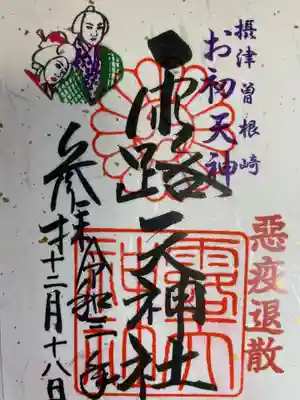 摂津曽根崎
お初天神
露天神社
悪疫退散
参拝
令和三年
十二月十八日